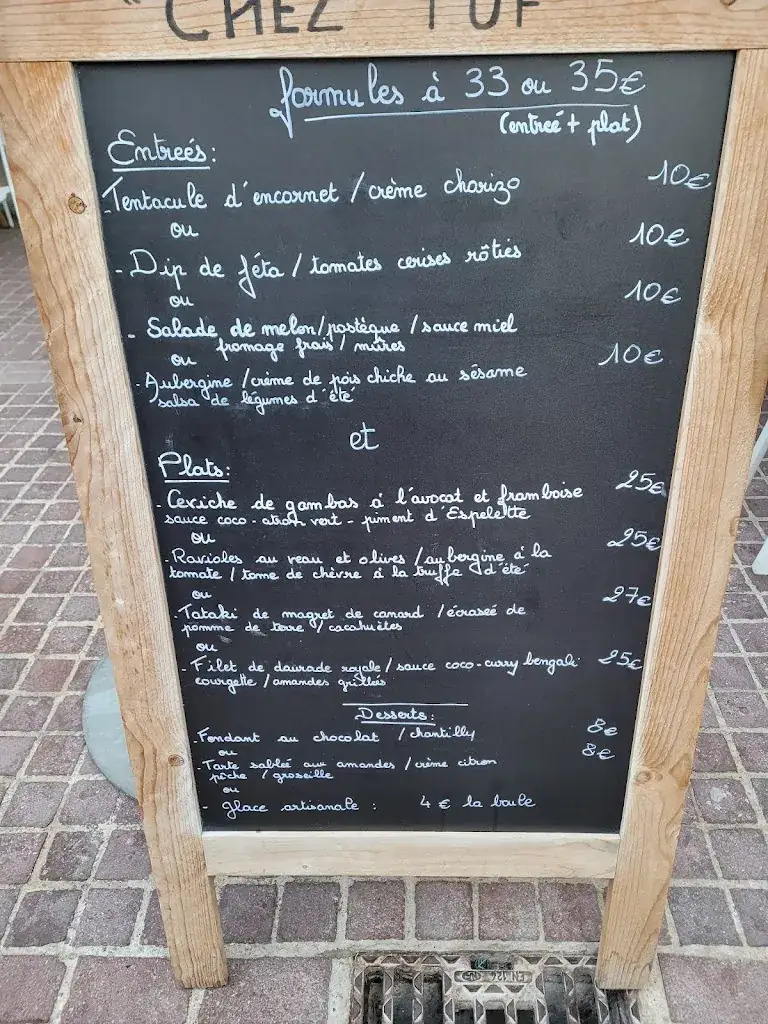 "CHEZ TOF
formules à 33 ou 35€
(entreé + plat)
Entreés:
- Tentacule d'encornet / crème chorizo 10€
ou
- Dip de féta / tomates cerises rôties 10€
ou
- Salade de melon/pastèque / sauce miel 10€
fromage frais / mûres
ou
- Aubergine / crème de pois chiche au sésame 10€
salsa de légumes d'été
et
Plats:
- Ceviche de gambas à l'avocat et framboise 25€
sauce coco - citron vert - piment d'Espelette
ou
- Ravioles au veau et olives / aubergine à la 25€
tomate / tome de chèvre à la truffe d'été
ou
- Tataki de magret de canard / écraseé de 27€
pomme de terre / cacahuètes
ou
- Filet de daurade royale / sauce coco-curry bengali 25€
courgette / amandes grillées
Desserts:
- Fondant au chocolat / chantilly 8€
ou
- Tarte sableé aux amandes / crème citron 8€
pêche / groseille
ou
- Glace artisanale : 4 € la boule